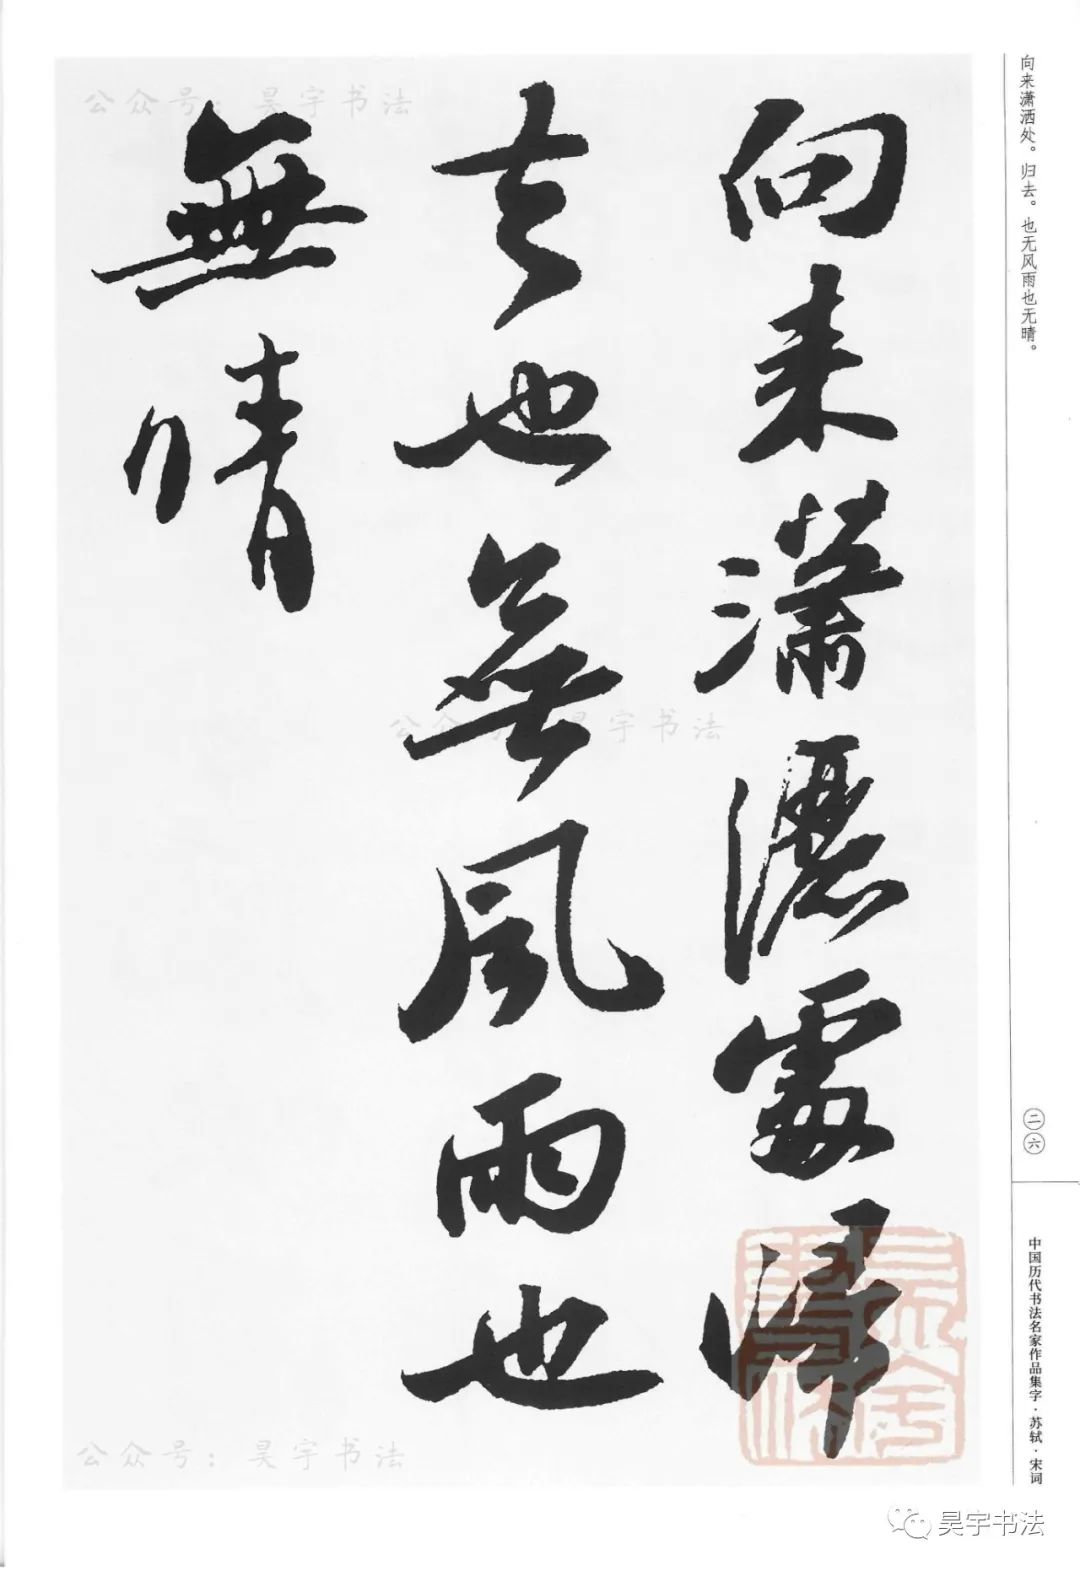 向来潇洒处。归去。也无风雨也无晴。
向来瀟灑處歸
去也無風雨也
無晴
公众号：昊宇书法
公众号：昊宇书法
公众号：昊宇书法
二六
中国历代书法名家作品集字·苏轼·宋词
昊宇书法